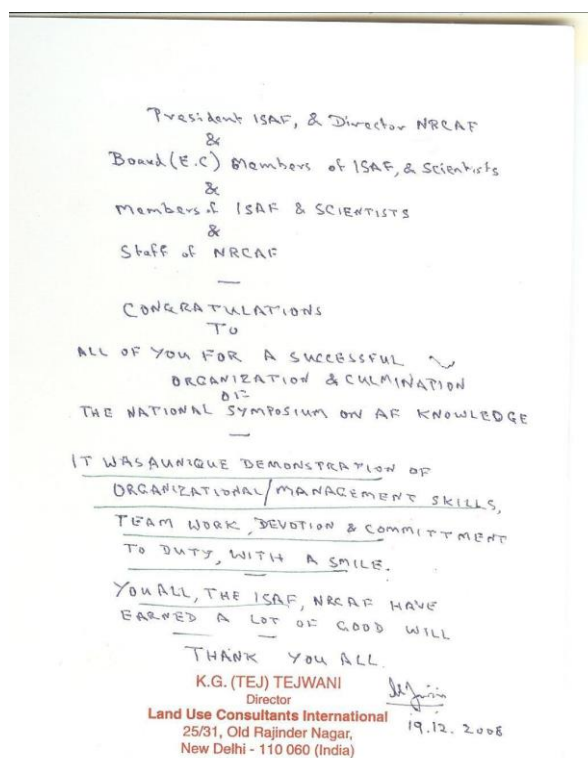 President ISAF, & Director NRCAF
&
Board (E.C) Members of ISAF, & Scientists
&
Members of ISAF & SCIENTISTS
&
Staff of NRCAF
—
CONGRATULATIONS
TO
ALL OF YOU FOR A SUCCESSFUL
ORGANIZATION & CULMINATION
OF
THE NATIONAL SYMPOSIUM ON AF KNOWLEDGE
—
IT WAS A UNIQUE DEMONSTRATION OF
ORGANIZATIONAL/MANAGEMENT SKILLS,
TEAM WORK, DEVOTION & COMMITTMENT
TO DUTY, WITH A SMILE.
—
YOU ALL, THE ISAF, NRCAF HAVE
EARNED A LOT OF GOOD WILL
THANK YOU ALL.
K.G. (TEJ) TEJWANI
Director
Land Use Consultants International
25/31, Old Rajinder Nagar,
New Delhi - 110 060 (India)
19.12.2008